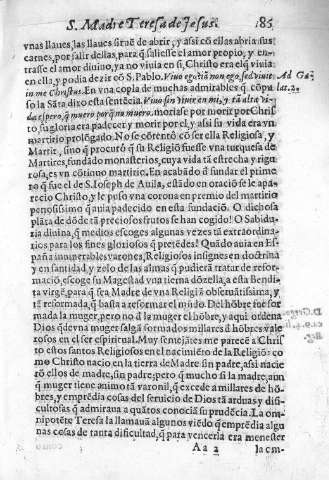 S. Madre Teresa de Jesus. 185
vnas llaues, las llaues siruē de abrir, y assi cō ellas abria sus
carnes, por salir dellas, para q̃ saliesse el amor propio, y en-
trasse el amor diuino, ya no viuia en si, Christo era el q̃ viuia
en ella, y podia dezir cō S. Pablo. Viuo ego iā non ego, sed viuit
in me Christus. En vna copla de muchas admirables q̃ cōpu
Ad Ga-
lat. 2.
so la Sāta dixo esta sentēcia. Viuo sin viuir en mi, y tā alta vi-
da espero, q̃ muero porq̃ no muero. moriase por morir por Christo
to, su gloria era padecer y morir por el, y assi su vida era vn
martirio prolōgado. No se cōtentó cō ser ella Religiosa, y
Martir, sino q̃ procuró q̃ su Religiō fuesse vna turquesa de
Martires, fundādo monasterios, cuya vida tā estrecha y rigu-
rosa, es vn cōtinuo martirio. En acabādo d̃ fundar el prime
ro q̃ fue el de S. Ioseph de Auila, estādo en oraciō se le apa-
recio Christo, y le puso vna corona en premio del martirio
penosissimo q̃ auia padecido en esta fundaciō. O dichosa
plata de dōde tā preciosos frutos se han cogido! O Sabidu-
ria diuina, q̃ medios escoges algunas vezes tā extraordina-
rios para los fines gloriosos q̃ pretēdes! Quādo auia en Es-
paña innumerables varones, Religiosos insignes en doctrina
y en santidad, y zelo de las almas q̃ pudierā tratar de refor-
macio, escoge su Magestad vna tierna dōzella, a esta bendi-
ta virgē, para q̃ sea Madre de vna Religiō obseruātissima, y
tā reformada, q̃ basta a reformar el mūdo. Del hōbre fue for
mada la muger, pero no d̃ la muger el hōbre, y aqui ordena
Dios q̃ de vna muger salgā formados millares d̃ hōbres vale-
rosos en el ser espiritual. Muy semejātes me parecē a Christ
to estos santos Religiosos en el nacimiēto de la Religiō: co-
mo Christo nacio en la tierra de Madre sin padre, assi nacie
rō ellos de madre, sin padre; pero q̃ mucho si la madre, aun
q̃ muger tiene animo tā varonil, q̃ excede a millares de hō-
bres, y emprēdia cosas del seruicio de Dios tā arduas y difi-
cultosas q̃ admiraua a quātos conociā su prudēcia. La om-
nipotēte Teresa la llamauā algunos viēdo q̃ emprēdia algu
nas cosas de tanta dificultad, q̃ para vencerla era menester
Aa 2 la om-